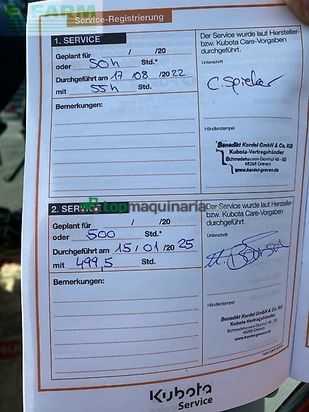 E-FARM
Service-Registrierung
1. SERVICE
Geplant für / /20
oder 50h Std.*
Durchgeführt am 17/08/2022
mit 55h Std.
Bemerkungen:
Der Service wurde laut Hersteller-
bzw. Kubota Care-Vorgaben
durchgeführt.
Unterschrift
Händlerstempel
Benedikt Kordel GmbH & Co. KG
Kubota-Vertragshändler
Schmedehausen-Dorfhof 48 - 50
48268 Greven
www.kordel-greven.de
topmaquinaria
2. SERVICE
Geplant für / /20
oder 500 Std.*
Durchgeführt am 15/01/2025
mit 499,5 Std.
Bemerkungen:
Der Service wurde laut Hersteller-
bzw. Kubota Care-Vorgaben
durchgeführt.
Unterschrift
Händlerstempel
Benedikt Kordel GmbH & Co. KG
Kubota-Vertragshändler
48268 Greven
www.kordel-greven.de
Kubota
Service